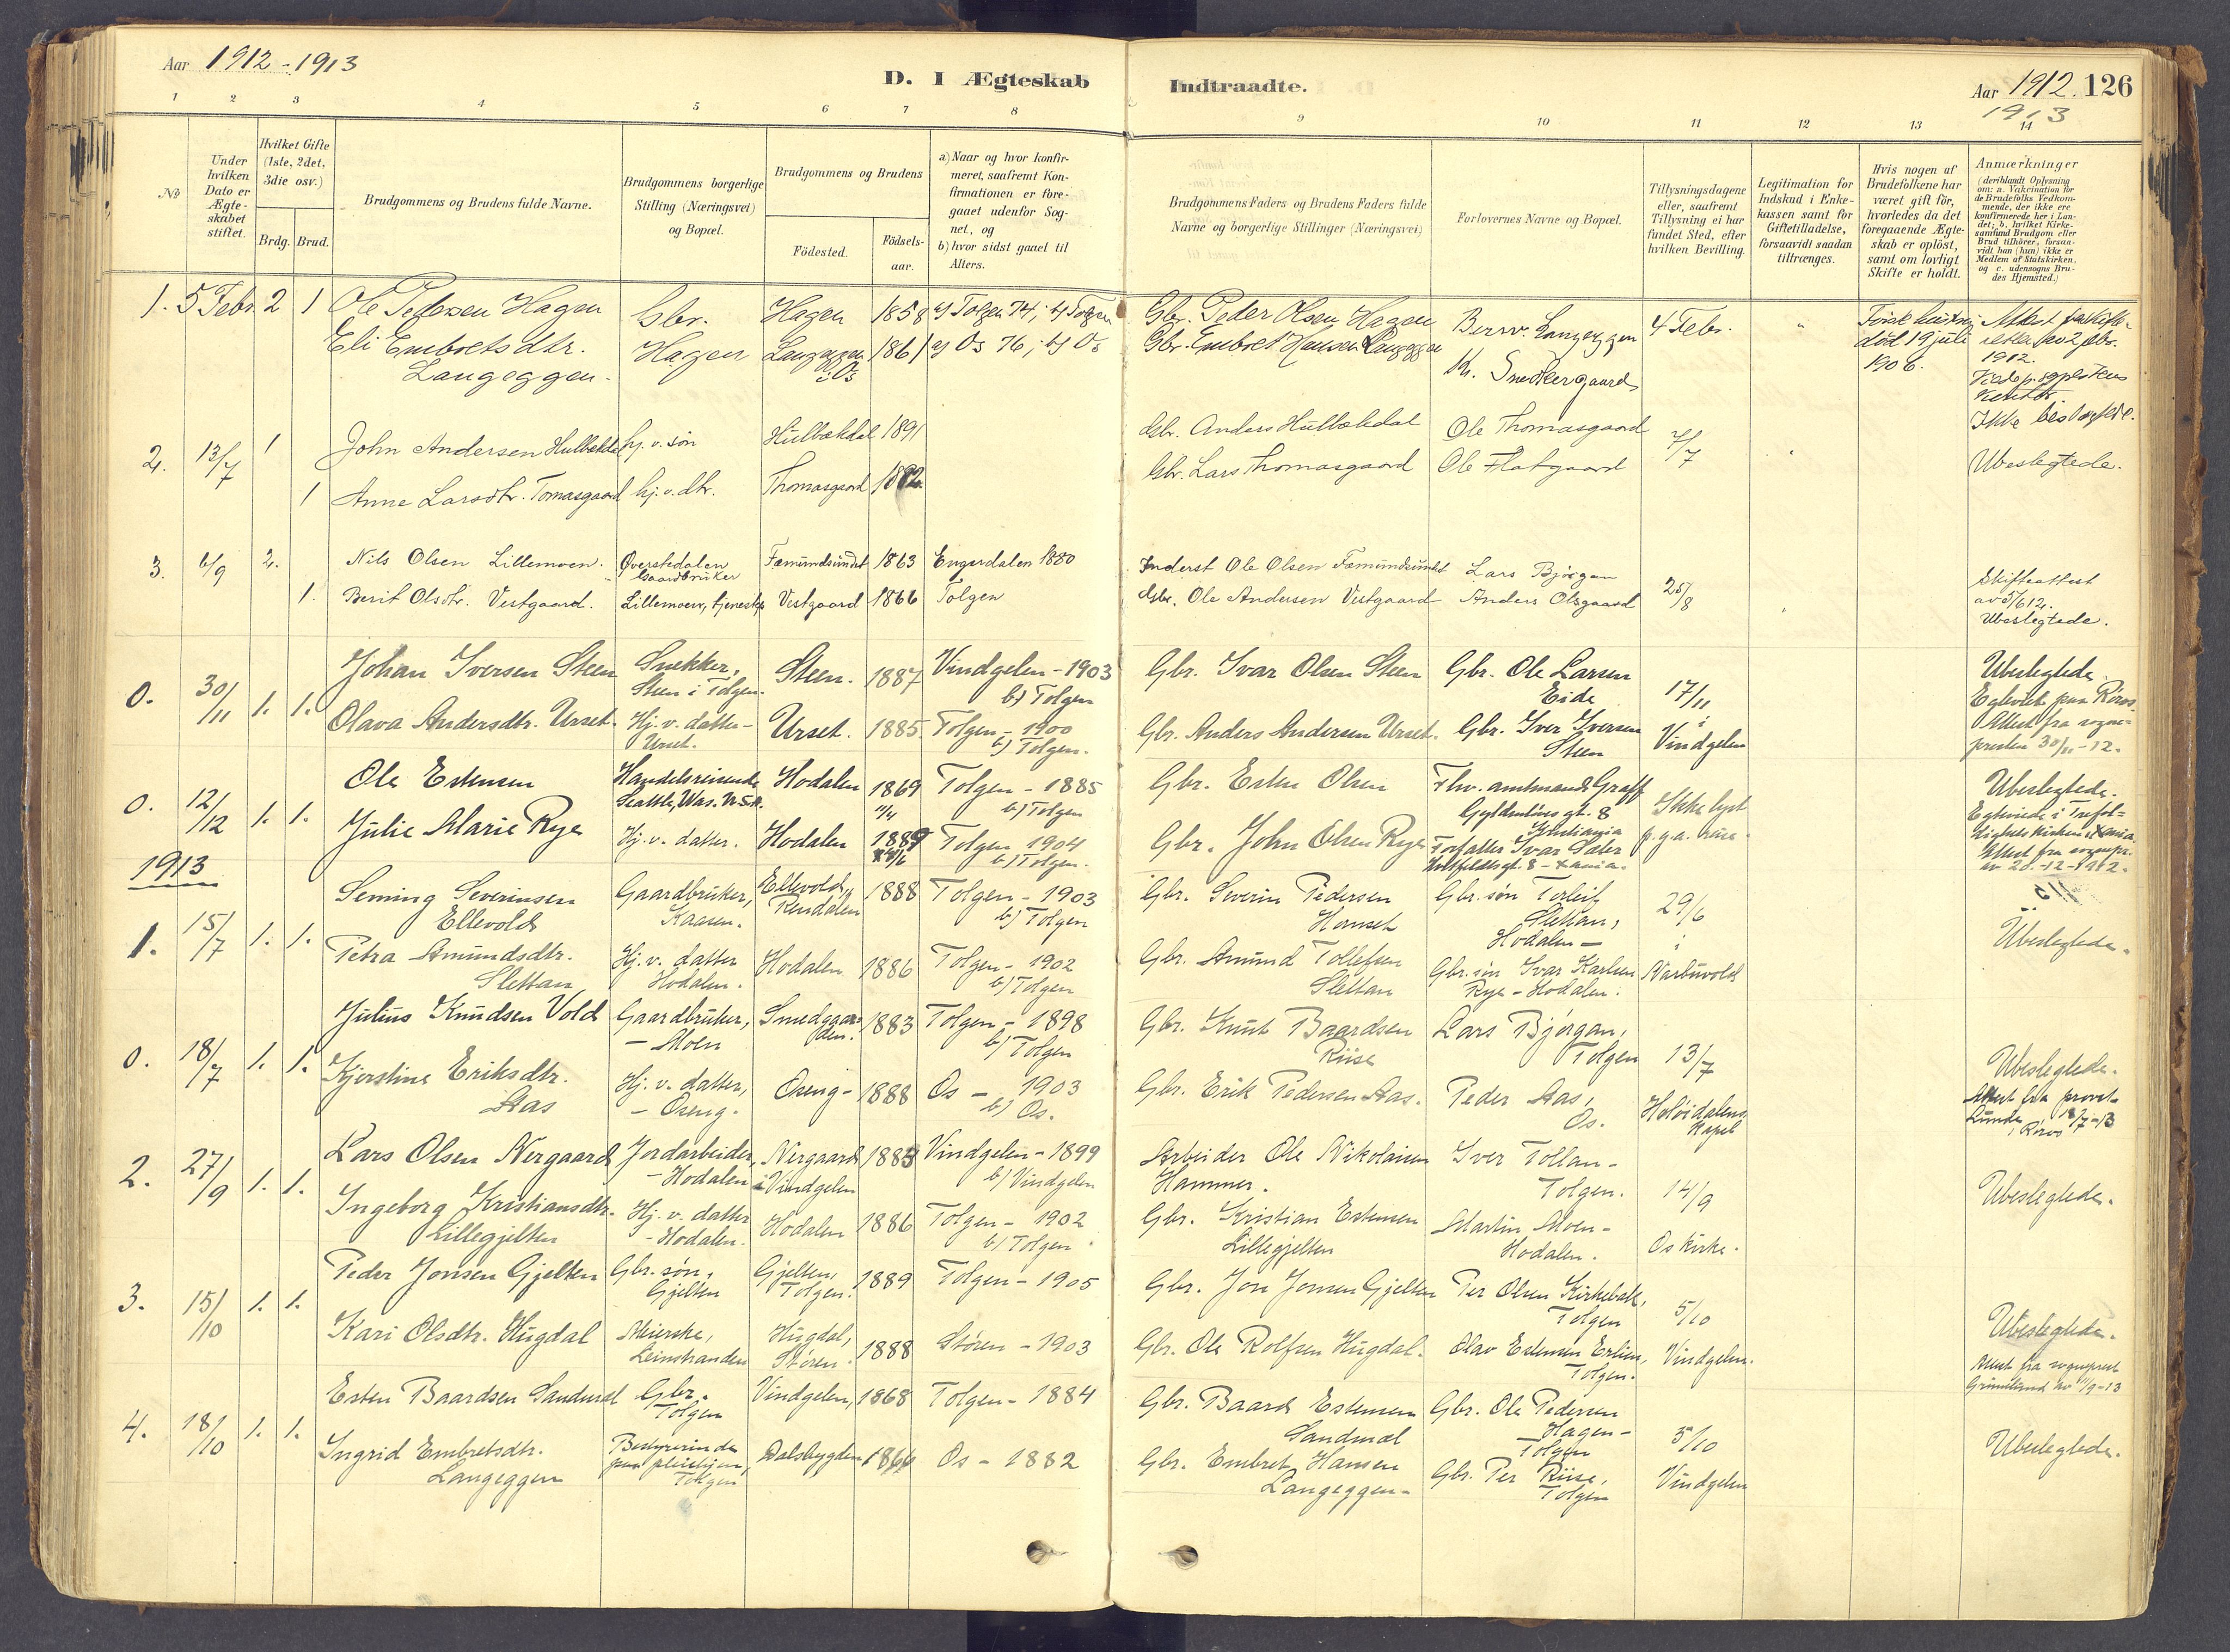 Aar 1912-1913
D. I Ægteskab Indtraadte.
Aar 1912. 126
1913
1 2 3 4 5 6 7 8 9 10 11 12 13 14
№
Under hvilken Dato er Ægteskabet stiftet.
Hvilket Gifte (1ste, 2det, 3die osv.)
Brdg. Brud.
Brudgommens og Brudens fulde Navne.
Brudgommens borgerlige Stilling (Næringsvei) og Bopæl.
Brudgommens og Brudens
Fødested.
Fødsels-aar.
a) Naar og hvor konfirmeret, saafremt Konfirmationen er foregaaet udenfor Sognet, og
b) hvor sidst gaaet til Alters.
Brudgommens Faders og Brudens Faders fulde Navne og borgerlige Stillinger (Næringsvei)
Forlovernes Navne og Bopæl.
Tillysningsdagene eller, saafremt Tillysning ei har fundet Sted, efter hvilken Bevilling.
Legitimation for Indskud i Enkekassen samt for Giftetilladelse, forsaavidt saadan tiltrænges.
Hvis nogen af Brudefolkene har været gift før, hvorledes da det foregaaende Ægteskab er opløst, samt om lovligt Skifte er holdt.
Anmærkninger
(deriblandt Oplysning om: a. Vakcination for de Brudefolks Vedkommende, der ikke ere konfirmerede her i Landet; b. hvilket Kirkesamfund Brudgom eller Brud tilhører, forsaavidt han (hun) ikke er Medlem af Statskirken, og c. udensogns Brudes Hjemsted.)
1. 5 Febr. 2 1 Ole Pedersen Hagen Gbr. Hagen 1858 a) Tolgen 74; b) Tolgen Gbr. Peder Olsen Hagen 4 Febr.
Eli Embretsdtr. Hagen Langeggen 1861 a) Os 76; b) Os Gbr. Embret Hansen Langeggen
Langeggen. i Os
død 19 juli
1906.
1912.
2. 13/7 1 John Andersen Hulbækdal hj. v. søn Hulbækdal 1891 Gbr. Anders Hulbækdal Ole Thomasgaard 7/7
1 Anne Larsdtr. Tomasgaard hj. v. dtr. Thomasgaard 1892 Gbr. Lars Thomasgaard Ole Flatgaard Ubeslegtede.
3. 6/9 2. Nils Olsen Lillemoen. Øverstedalen Gaardbruker Fæmundsundet 1863 Engerdalen 1880 Inderst Ole Olsen Fæmundsundet Lars Bjørgan 25/8
1. Berit Olsdtr. Vestgaard. Lillemoen, Vestgaard 1866 Tolgen Gbr. Ole Andersen Vestgaard Anders Olsgaard
Skifteattest
av 5/6 12.
Ubeslegtede.
0. 30/11 1. 1. Johan Iversen Steen Snekker, Steen i Tolgen. Steen. 1887 Vindgelen - 1903 b) Tolgen Gbr. Ivar Olsen Steen Gbr. Ole Larsen Eide 17/11 i Vindgelen
Olava Andersdtr. Urset. Hj. v. datter - Urset. Urset. 1885. Tolgen - 1900 b) Tolgen. Gbr. Anders Andersen Urset. Gbr. Iver Iversen Steen
Ubeslegtede.
Egteviet paa Røros.
Attest fra sogne-
presten 30/11-12.
0. 12/12 1. 1. Ole Estensen Handelsreisende Seattle, Was. U.S.A. Hodalen 1869 Tolgen - 1885 b) Tolgen Gbr. Esten Olsen Fhv. amtmand Graff Gyldenløves gt. 8 Kristiania
Julie Marie Rye Hj. v. datter. Hodalen 1889 Tolgen 1904 b) Tolgen. Gbr. John Olsen Rye Forfatter Ivar Sæter Ikke lyst p.g.a. reise.
Ubeslegtede.
1913
1. 15/7 1. 1. Seming Severinsen Ellevold Gaardbruker, Kaasen. Ellevold, Rendalen 1888 Tolgen - 1903 b) Tolgen Gbr. Severin Pedersen Hanset Gbr. søn Torleif Slettan, Hodalen - 29/6 i Narbuvold
Petra Amundsdtr. Slettan Hj. v. datter Hodalen. Hodalen 1886 Tolgen - 1902 b) Tolgen Gbr. Amund Tollefsen Slettan Gbr. søn Ivar Karlsen Rye - Hodalen. Ubeslegtede.
0. 18/7 1. 1. Julius Knudsen Vold Gaardbruker, - Moen Smedgaarden. 1883 Tolgen - 1898 b) Tolgen Gbr. Knut Baardsen Riise Lars Bjørgan, Tolgen 13/7
Kjerstine Eriksdtr. Aas Hj. v. datter, - Øseng. Øseng - 1888 Os - 1903 b) Os. Gbr. Erik Pedersen Aas. Peder Aas, Os. Holøidalens kapel
Ubeslegtede.
Attest fra provst
Lunde, Røros 18/7-13
2. 27/9 1. 1. Lars Olsen Nergaard Jordarbeider, - Hodalen Nergaard i Vindgelen 1883 Vindgelen - 1899 b) Vindgelen Arbeider Ole Nikolaisen Hammer. Iver Tollan - Tolgen. 14/9
Ingeborg Kristiansdtr. Lillegjelten Hj. v. datter - Hodalen. Hodalen 1886 Tolgen - 1902 b) Tolgen Gbr. Kristian Estensen Lillegjelten Martin Moen - Hodalen. Os kirke. Ubeslegtede.
3. 15/10 1. 1. Peder Jonsen Gjelten Gbr. søn, Gjelten Gjelten, Tolgen. 1889 Tolgen - 1905 Gbr. Jon Jonsen Gjelten Per Olsen Kirkebak, Tolgen 5/10
Kari Olsdtr. Hugdal Meierske, Leinstranden Hugdal, Støren. 1888 Støren - 1903 Gbr. Ole Rolfsen Hugdal. Olav Estensen Erlien, Tolgen. Vindgelen.
Ubeslegtede.
4. 18/10 1. 1. Esten Baardsen Sandmæl Gbr. Tolgen Vindgelen, 1868 Tolgen - 1884 Gbr. Baard Estensen Sandmæl Gbr. Ole Pedersen Hagen - Tolgen 5/10
Ingrid Embretsdtr. Langeggen Bestyrerinde paa pleiehjem, Tolgen Dalsbygden 1866 Os - 1882 Gbr. Embret Hansen Langeggen - Gbr. Per Riise, Tolgen Vindgelen
Ubeslegtede.